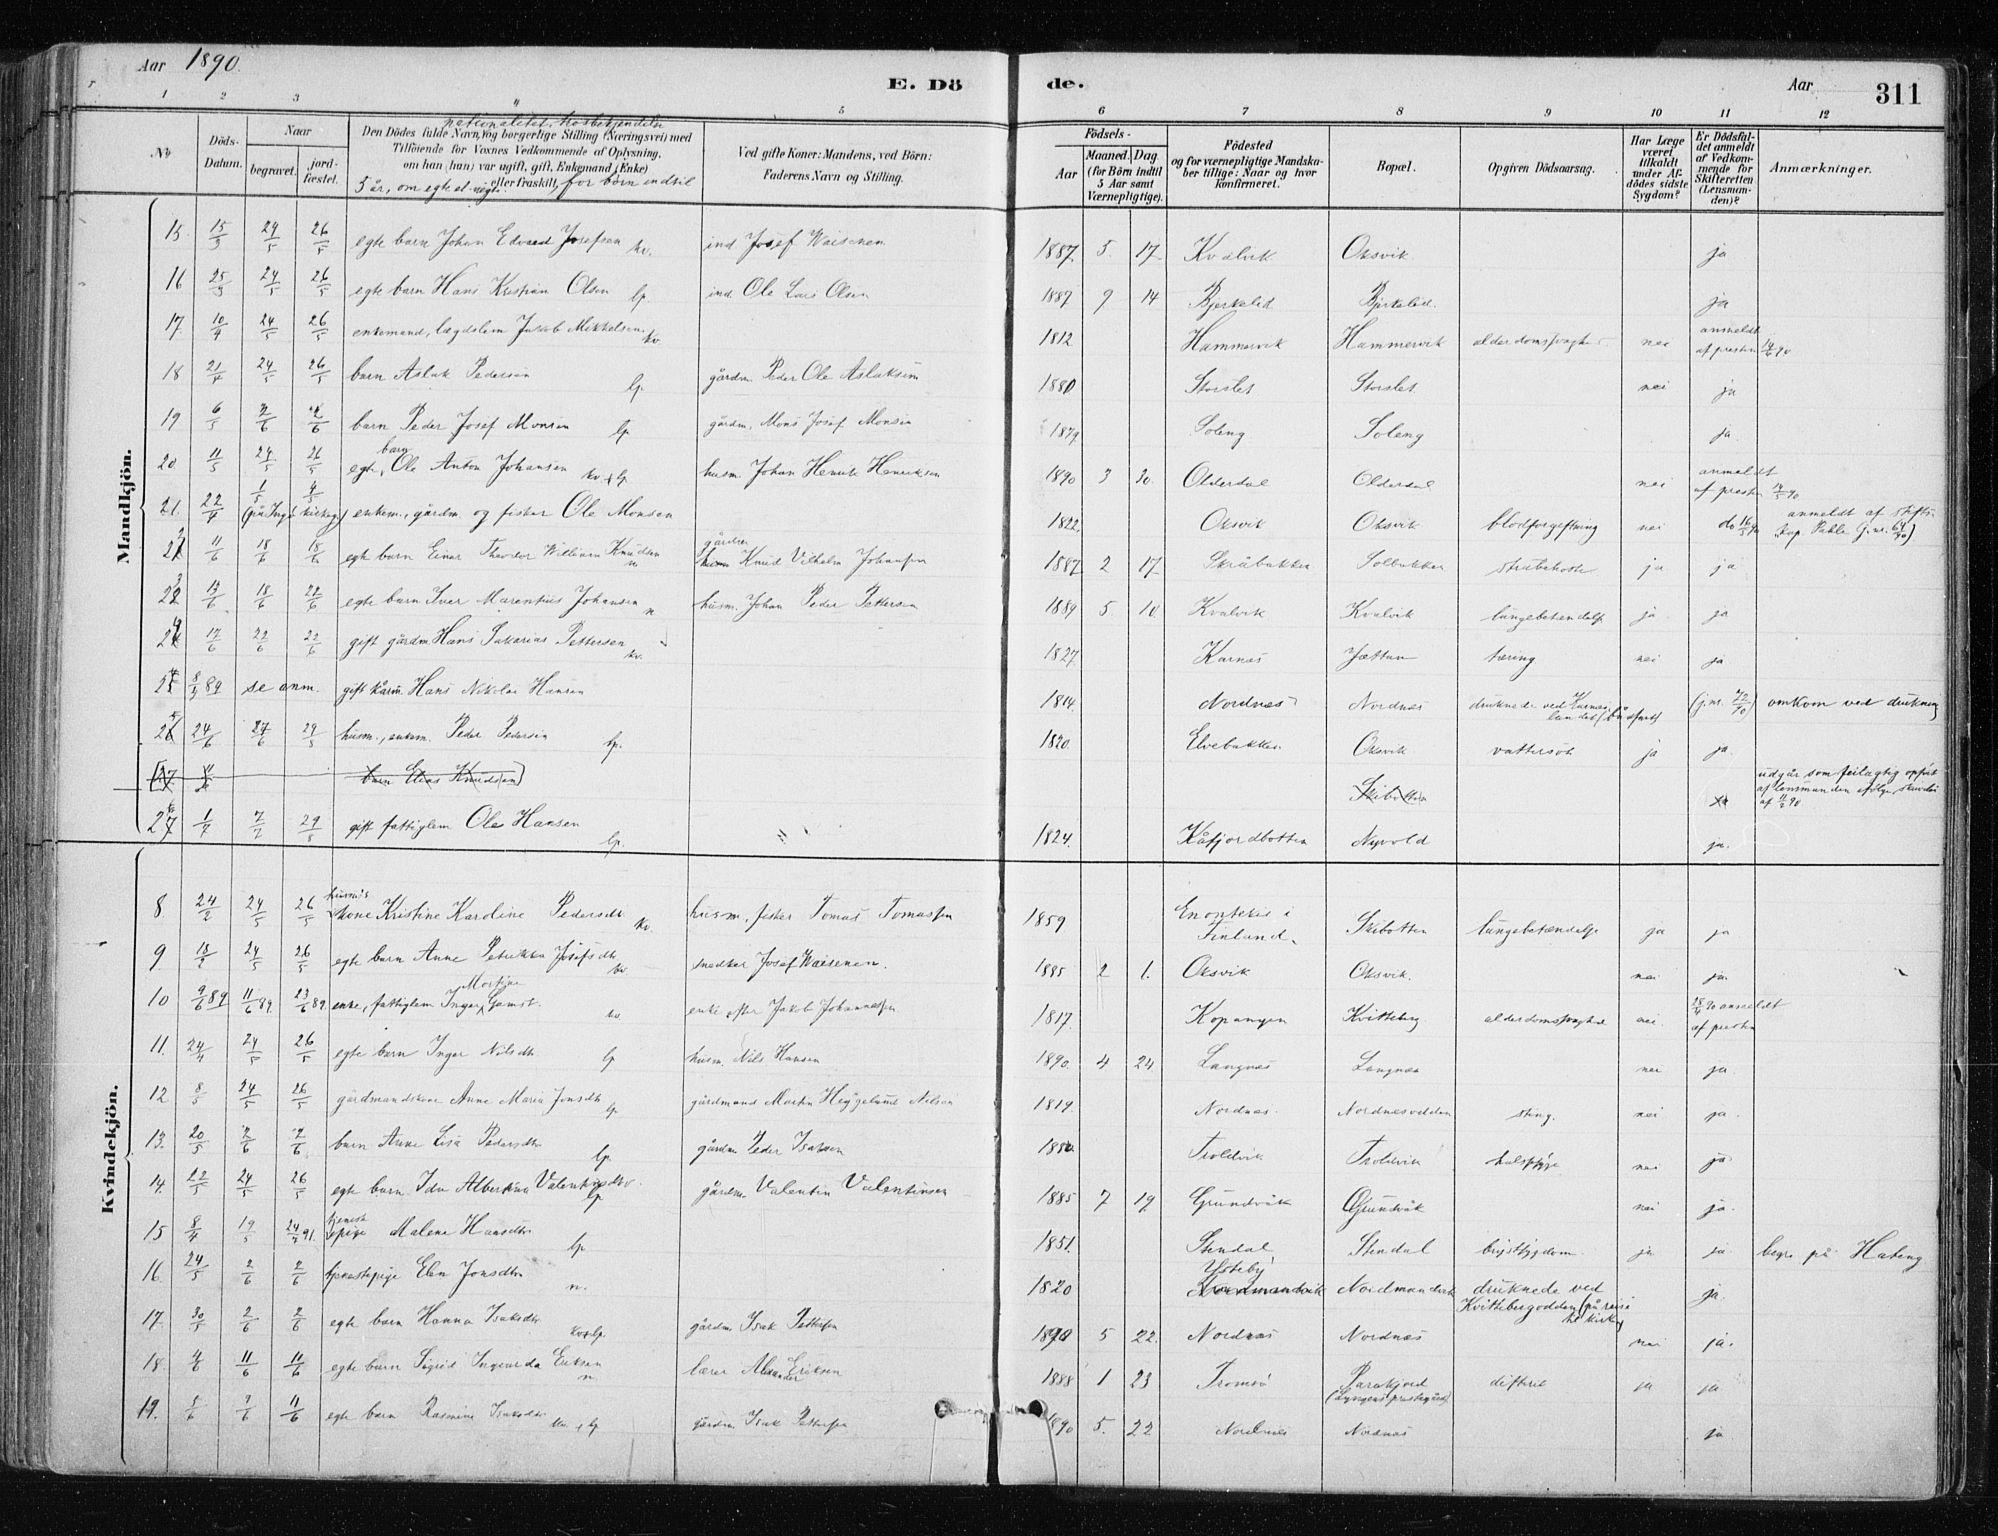 Aar 1890.
E. Dö
de.
Aar
311
1 2 3 4 5 6 7 8 9 10 11 12
No
Döds-Datum.
Naar
begravet.
jord-fæstet.
nationalitet, trosbekjendelse
Den Dödes fulde Navn, og borgerlige Stilling (Næringsvei) med
Tilföiende for Voxnes Vedkommende af Oplysning,
om han (hun) var ugift, gift, Enkemand (Enke)
eller fraskilt, for börn indtil
5 år, om egte el. uegte.
Ved gifte Koner: Mandens, ved Börn:
Faderens Navn og Stilling.
Födsels-
Aar
Maaned. Dag.
(for Börn indtil 5 Aar samt Værnepligtige).
Födested
og for værnepligtige Mandska-
ber tillige: Naar og hvor
konfirmeret.
Bopæl.
Opgiven Dödsaarsag.
Har Læge været tilkaldt under Afdödes sidste Sygdom?
Er Dödsfaldet anmeldt af Vedkommende for Skifteretten (Lensmanden)?
Anmærkninger.
Mandkjön.
15. 15/3 24/5 26/5 egte barn Johan Edvard Josefsen kv. ind. Josef Waisenen 1887. 5. 17. Kvalvik Oksvik. ja
16 25/3 24/5 26/5 egte barn Hans Kristian Olsen lp. ind. Ole Lars Olsen 1887 9 14 Bjerkelid Bjerkelid. ja
17. 10/4 24/5 26/5 enkemand, lægdslem Jakob Mikkelsen. kv. 1812. Hammervik Hammervik alderdomssvaghed nei anmeldt af presten 14/6 90
18 21/4 24/5 26/5 barn Aslak Pedersen lp. gårdm. Peder Ole Aslaksen 1880 Storslet Storslet. nei ja
19 6/5 2/6 2/6 barn Peder Josef Monsen lp gårdm. Mons Josef Monsen 1879. Soleng Soleng ja.
20. 11/5 24/5 26/5 egte barn Ole Anton Johansen kv. + lp. husm. Johan Henrik Henriksen 1890 3 30. Olderdal Olderdal nei anmeldt af presten 14/6 90.
21. 22/4 1/5 4/5 enkem., gårdm og fisker Ole Monsen 1822. Oksvik Oksvik blodforgiftning nei do 16/5 90 anmeldt af skifts
22 11/6 18/6 18/6 egte barn Einar Theodor William Knudsen n gårdm Knud Vilhelm Johansen 1887. 2 17. Skråbakken Solbakken strubehoste ja ja
23 13/6 18/6 22/6 egte barn Iver Marentius Johansen n husm. Johan Peder Pettersen 1889 5. 10. Kvalvik Kvalvik lungebetændelse ja ja
24 17/6 22/6 22/6 gift gårdm Hans Sakarias Pettersen kv. 1827. Karnes tæring nei ja
25 89 se anm. gift kårm. Hans Nikolai Hansen 1814. Nordnes Nordnes druknede ved Karnes landet (båd (j.nr. 72/90) omkom ved drukning
26 24/6 27/6 29/5 husm., enkem. Peder Pedersen lp. 1820. Elvebakken Oksvik. vattersot ja ja.
barn Elias Knudsen Skibotten udgår som feilagtig opført af lensmanden
27 1/7 7/7 29/5 gift fattiglem Ole Hansen lp. 1824. Kåfjordbotten Nyvold ja.
Kvindekjön.
8 24/2 24/5 26/5 husm's kone Kristine Karoline Pedersdtr. kv husm. fisker Tomas Tomassen 1859 Enontekis i Finland. Skibotten lungebetændelse ja ja
9. 18/2 24/5 26/5 egte barn Anne Petrikka Josefsdtr kv. snedker Josef Waisenen. 1885 2 1. Oksvik Oksvik. nei ja.
10 9/6 89 11/6 89. 23/6 89. enke, fattiglem Inger Gamst. kv enke efter Jakob Johannessen 1817. Kopangen Kvitteberg alderdomssvaghed nei. 28/4 90 anmeldt af presten
11. 24/4 24/5 26/5 egte barn Inger Nilsdtr lp husm. Nils Hansen 1890. 4 24 Langnes Langnes nei ja.
12 8/5 24/5 26/5 gårdmandskone Anne Maria Jonsdtr lp. gårdmand Morten Heggelund Nilsen 1819. Nordnes. Nordnesodden sting. nei ja.
13. 20/5 2/6 2/6 barn Anne Lisa Pedersdtr lp. gårdm Peder Isaksen Troldvik Troldvik halssyge nei ja
14. 22/5 24/5 26/5 egte barn Ida Albertina Valentinsdtr. lp gårdm. Valentin Valentinsen 1885 7 19 Grundvåk Grundvåk nei ja.
15 8/4 19/5 91. pige Malene Hansdtr lp 1851. Stendal Stendal brystsygdom ja ja begr. på Hateng
16. 24/5 2/6 2/6 Elen Jonsdtr n. 1820 Ysteby Nordmandvik Nordmandvik druknede ved Kvittebergodden (på reise til kirke) ja.
17. 30/5 2/6 2/6 egte barn Hanna Isaksdtr kv + lp. gårdm Isak Pettersen 1890 5 22. Nordnes Nordnes nei ja.
18. 4/6 11/6 11/6 egte barn Sigrid Ingeorda Eriksen n lærer Alexander Eriksen 1888 1 23 Tromsö (Lyngens prestegård) difteri ja ja
19. 5/6 9/6 11/6 egte barn Rasmine Isaksdtr kv. + lp gårdm. Isak Pettersen 1890 5. 22 Nordnes Nordnes ja